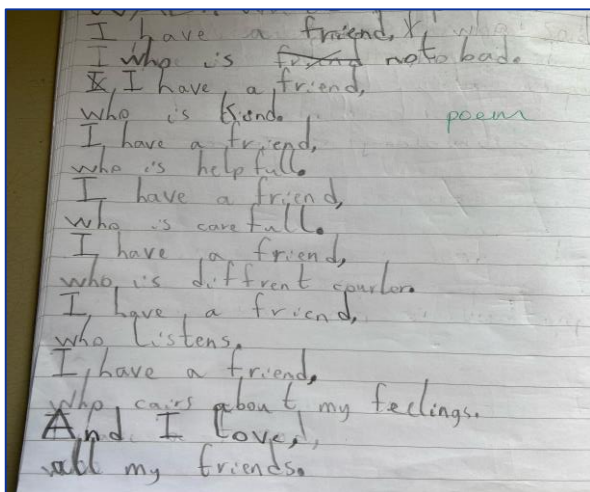 I have a friend,
I who is friend not bad.
I, I have a friend,
who is kind.
poem
I have a friend,
who is helpfull.
I have a friend,
who is carefull.
I have a friend,
who is diffrent courler.
I have a friend,
who listens.
I have a friend,
who cairs about my feelings.
And I love,
all my friends.